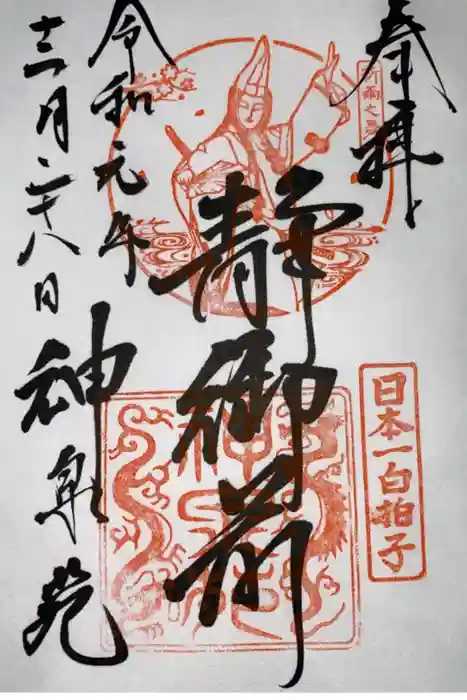 奉拝
祈雨之舞
日本一白拍子
静御前
令和元年
十二月二十八日
神泉苑